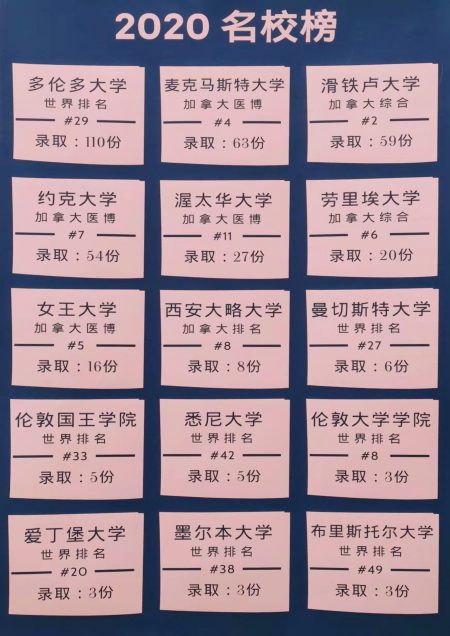 2020 名校榜
多伦多大学
世界排名
#29
录取：110份
麦克马斯特大学
加拿大医博
#4
录取：63份
滑铁卢大学
加拿大综合
#2
录取：59份
约克大学
加拿大医博
#7
录取：54份
渥太华大学
加拿大医博
#11
录取：27份
劳里埃大学
加拿大综合
#6
录取：20份
女王大学
加拿大医博
#5
录取：16份
西安大略大学
加拿大排名
#8
录取：8份
曼切斯特大学
世界排名
#27
录取：6份
伦敦国王学院
世界排名
#33
录取：5份
悉尼大学
世界排名
#42
录取：5份
伦敦大学学院
世界排名
#8
录取：3份
爱丁堡大学
世界排名
#20
录取：3份
墨尔本大学
世界排名
#38
录取：3份
布里斯托尔大学
世界排名
#49
录取：3份